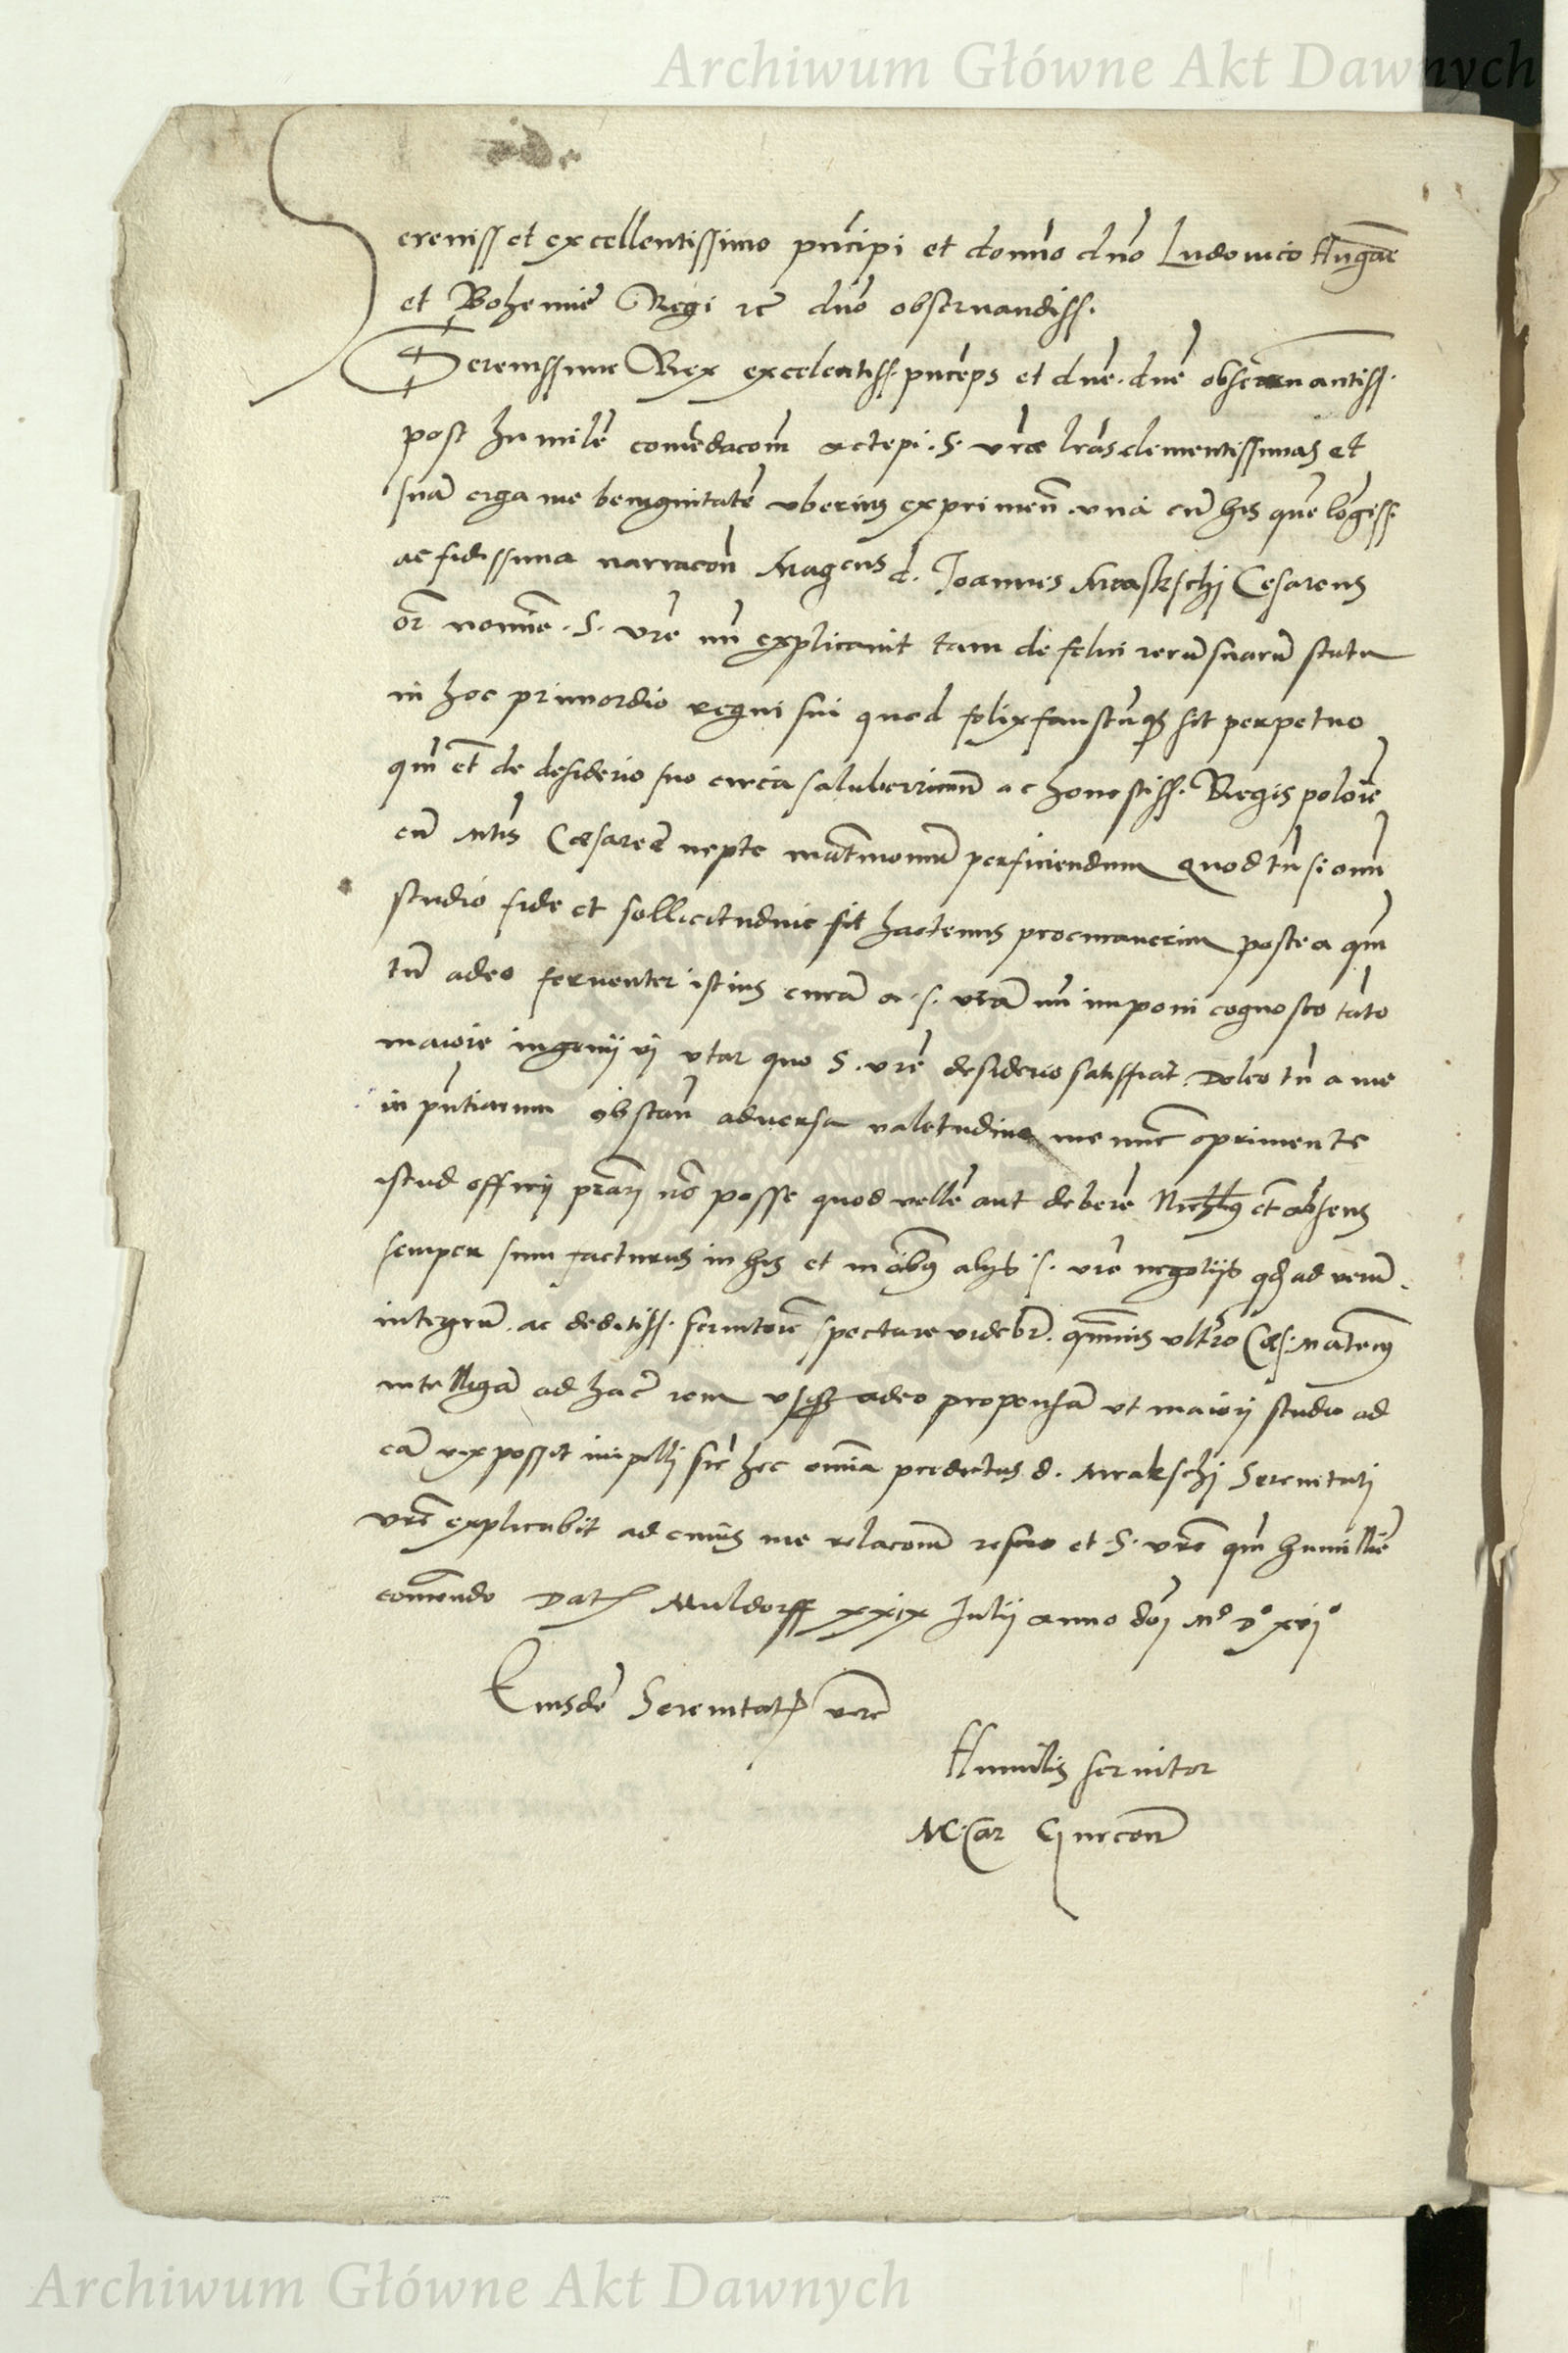 Archiwum Główne Akt Dawnych
Sereniss et excellentissimo pncipi et domno dno Ludouico Hungarie
et Bohemie Regi rc dno obseruandiss.
Serenissime Rex excelentiss. pnceps et dne. dne obseruantiss.
post humile comedacom accepi. S. vrae lras clementissimas et
sua erga me benignitate vberius exprimen. vna cu his que logiss.
ac fidissima narracon Magcus d. Joannes Mraskschj Cesareus
or nomine. S. vre mi explicauit tam de felici reru suaru statu
in hoc primordio regni sui quod felix faustuq sit perpetuo
qm et de desiderio suo circa saluberrimu ac honestiss. Regis polonie
cu Mtis Caesaree nepte matrimoniu perficiendum quod tn si omni
studio fide et sollicitudine sit hactenus procurauerim postea qm
tn adeo feruenter istius cura a. s. vra mi imponi cognosco tato
maiore ingenij vi vtar quo S. vre desiderio satisfiat Doleo tn a me
in pntiarum obstan aduersa valetudine me nunc oprimente
istud officij prari no posse quod velle aut debere Nichlus et absens
semper sum facturus in his et in oibus alijs. s. vre negotijs qd ad veru
integru. ac deditiss. seruitore spectare videbr. qmuis vltro Caes. Matem
intelliga ad hac rem vsq adeo propensa vt maiorj studio ad
ea vix possit impellj sic hec omnia predictus d. Mrakschj Serenitatj
vre explicabit ad cuius me relacom refero et S. vre qm humillie
comendo Dat Muldorff xxix Julij anno dnj Mo Do xvjo
Eiusde Serenitat vre
Humilis seruitor
M. Car Gurcen
Archiwum Główne Akt Dawnych